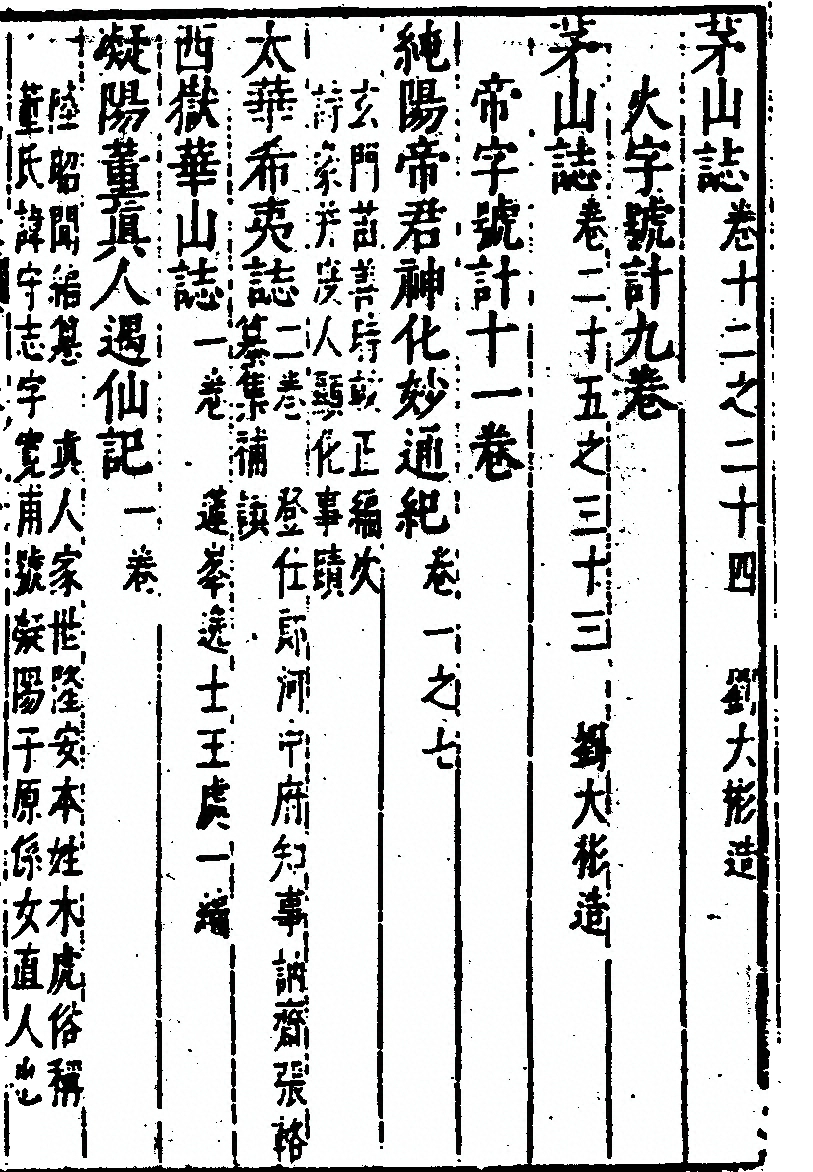 茅山誌 卷十二之二十四 劉大彬造
火字號計九卷
茅山誌 卷二十五之三十三 劉大彬造
帝字號計十一卷
純陽帝君神化妙通紀 卷一之七
玄門苗善時 正編次
詩家并度人顯化事蹟
太華希夷誌 二卷 登仕郎河中府知事訥齋張輅
纂集補
西嶽華山誌 一卷 蓮峯逸士王處一編
凝陽董真人遇仙記 一卷
陸昭聞編纂 真人家世隆安本姓木虎俗稱
董氏諱守志字寬甫號凝陽子原係女直人也